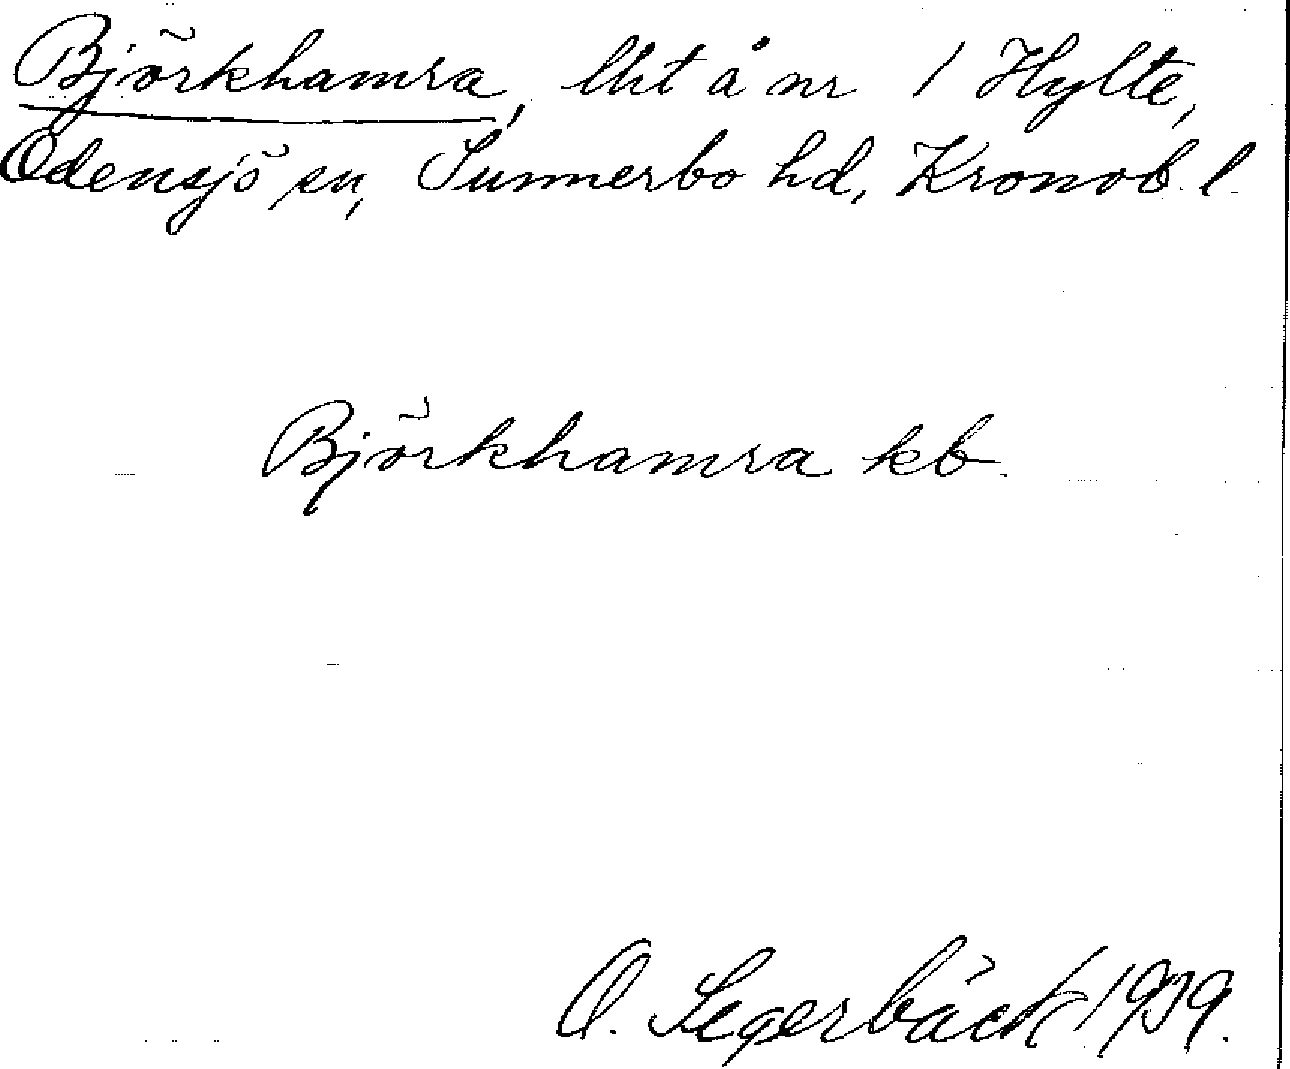 Björkhamra, lht å nr 1 Hylte,
Odensjö sn, Sunnerbo hd, Kronob. l.
Björkhamra kb.
O. Segerbäck 1939.